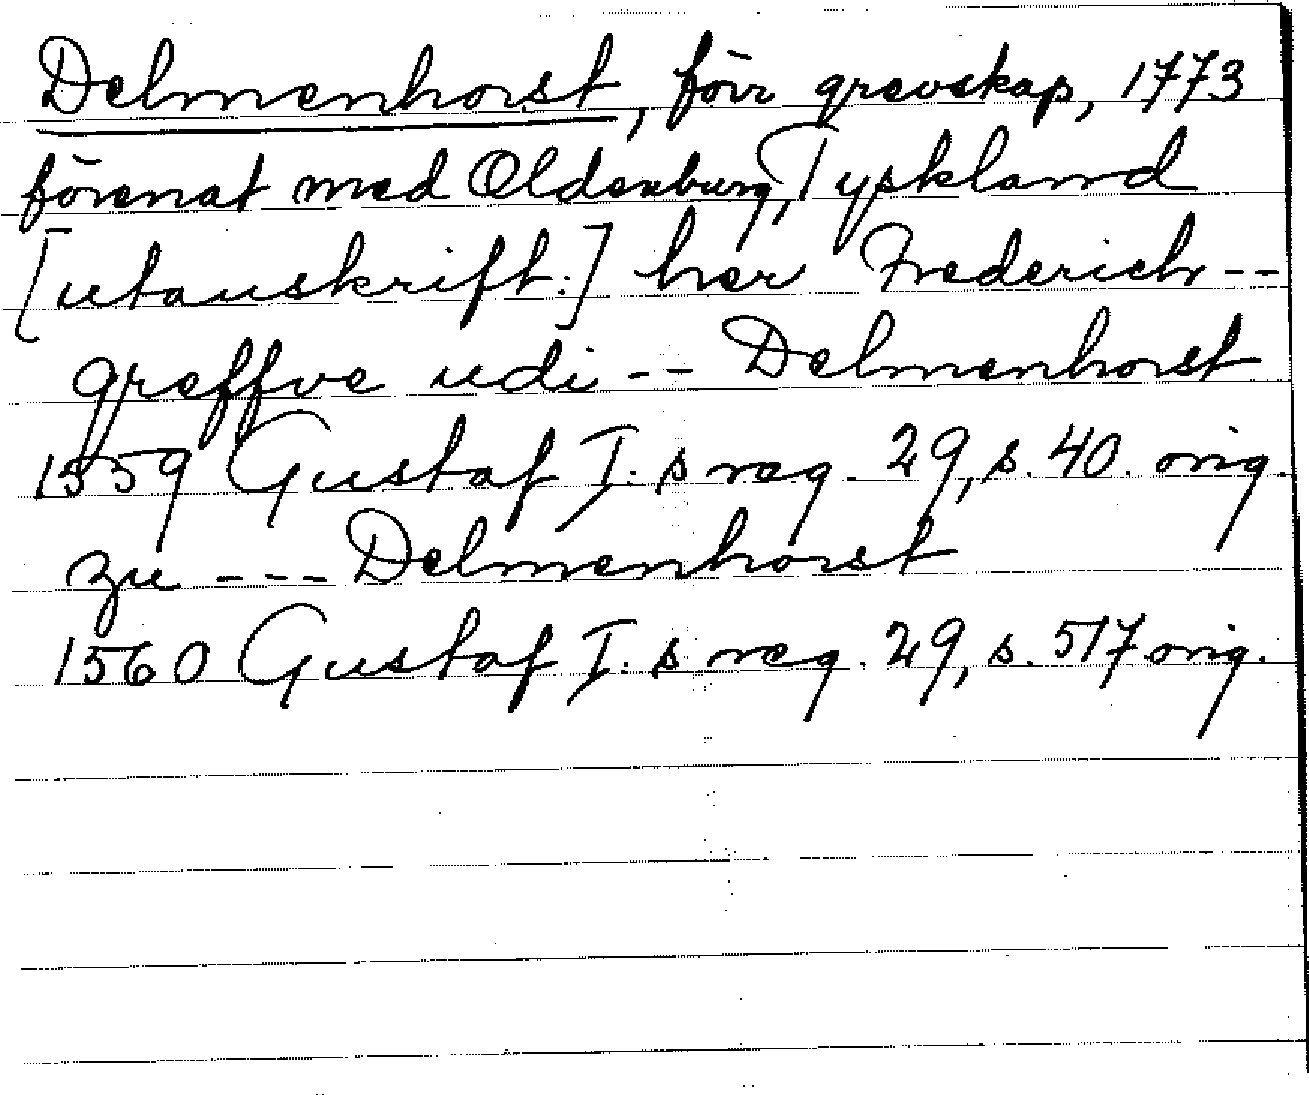 Delmenhorst, förr grevskap, 1773
förenat med Oldenburg, Tyskland
[utanskrift:] her Frederich --
greffve udi -- Delmenhorst
1559 Gustaf I:s reg. 29, s. 40. orig.
zu --- Delmenhorst
1560 Gustaf I:s reg. 29, s. 517 orig.